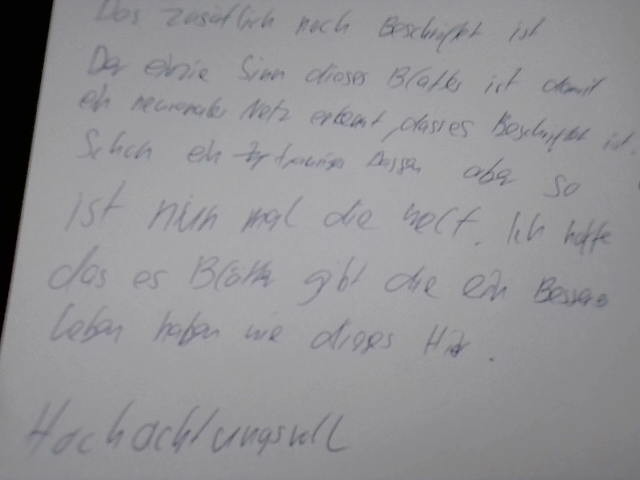 Das zusätlich noch Beschriftet ist
Der einzie Sinn dieses Blattes ist damit
ein neuronales Netz erkennt, dass es Beschriftet ist.
Schon ein trauriges aber so
ist nun mal die welt. Ich hoffe
das es Blätter gibt die ein Besseres
leben haben wie dieses Hier.
Hochachtungsvoll